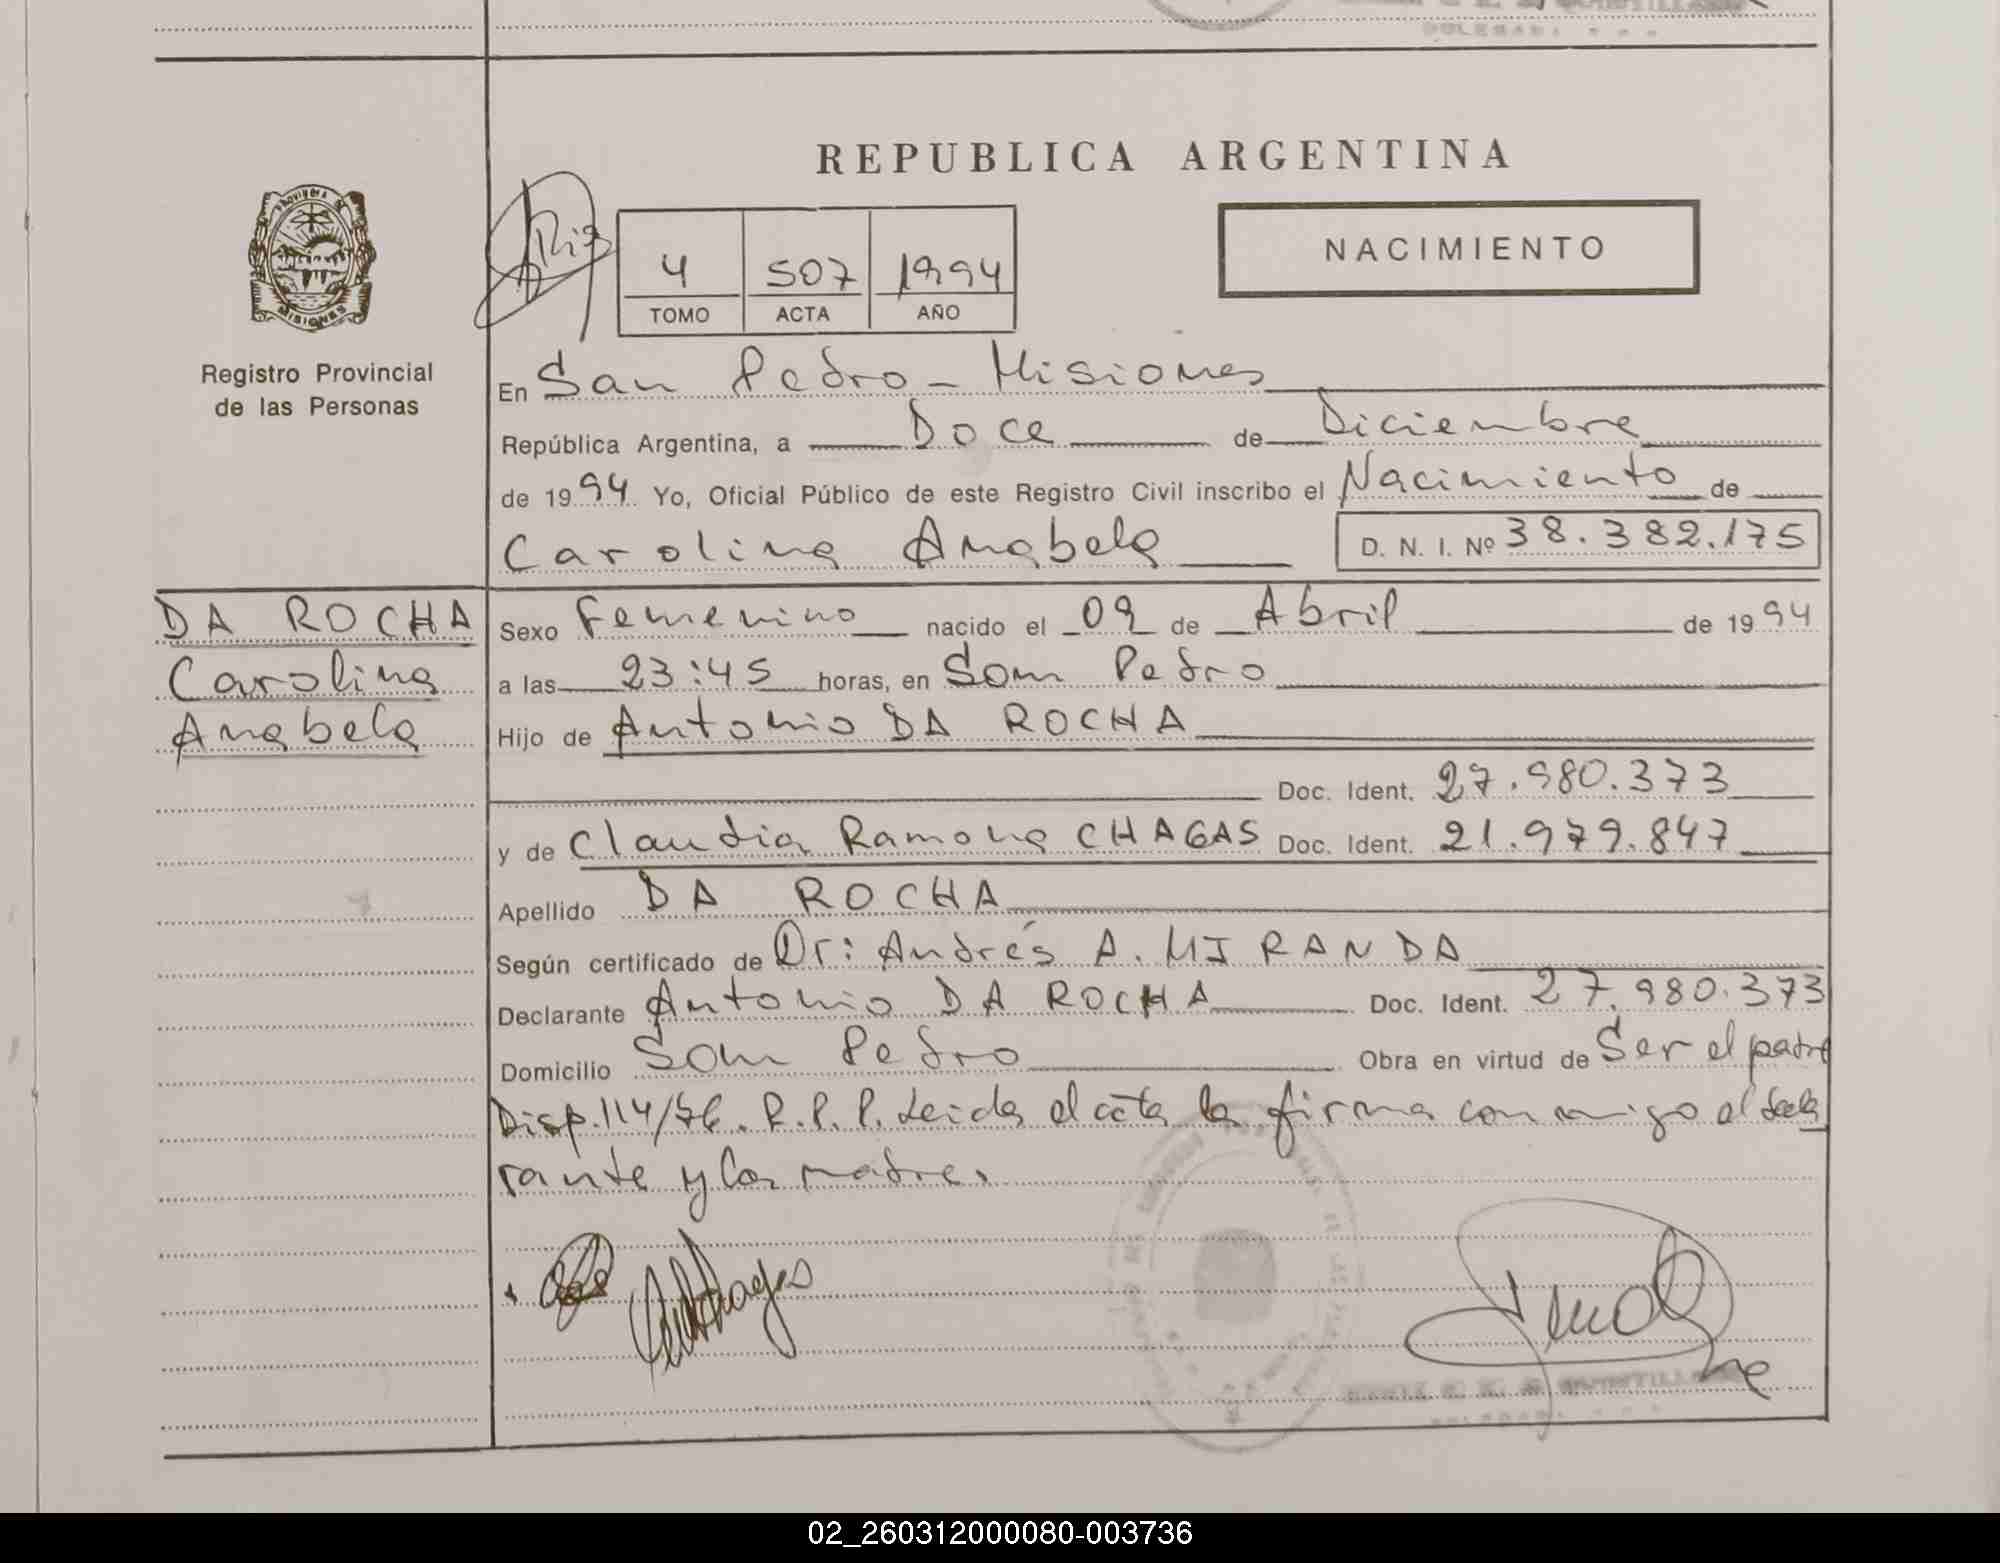 REPUBLICA ARGENTINA
PROVINCIA DE
MISIONES
Registro Provincial
de las Personas
4 507 1994
TOMO ACTA AÑO
NACIMIENTO
En San Pedro - Misiones
República Argentina, a Doce de Diciembre
de 1994 Yo, Oficial Público de este Registro Civil inscribo el Nacimiento de
Carolina Anabela D. N. I. Nº 38.382.175
DA ROCHA
Carolina
Anabela
Sexo Femenino nacido el 09 de Abril de 1994
a las 23:45 horas, en San Pedro
Hijo de Antonio DA ROCHA
Doc. Ident. 27.980.373
y de Claudia Ramona CHAGAS Doc. Ident. 21.979.847
Apellido DA ROCHA
Según certificado de Dr: Andrés A. MIRANDA
Declarante Antonio DA ROCHA Doc. Ident. 27.980.373
Domicilio San Pedro Obra en virtud de Ser el padre
Disp. 114/76. R.P.P. Leida el acta la firma conmigo el decla
rante y la madre.
02_260312000080-003736